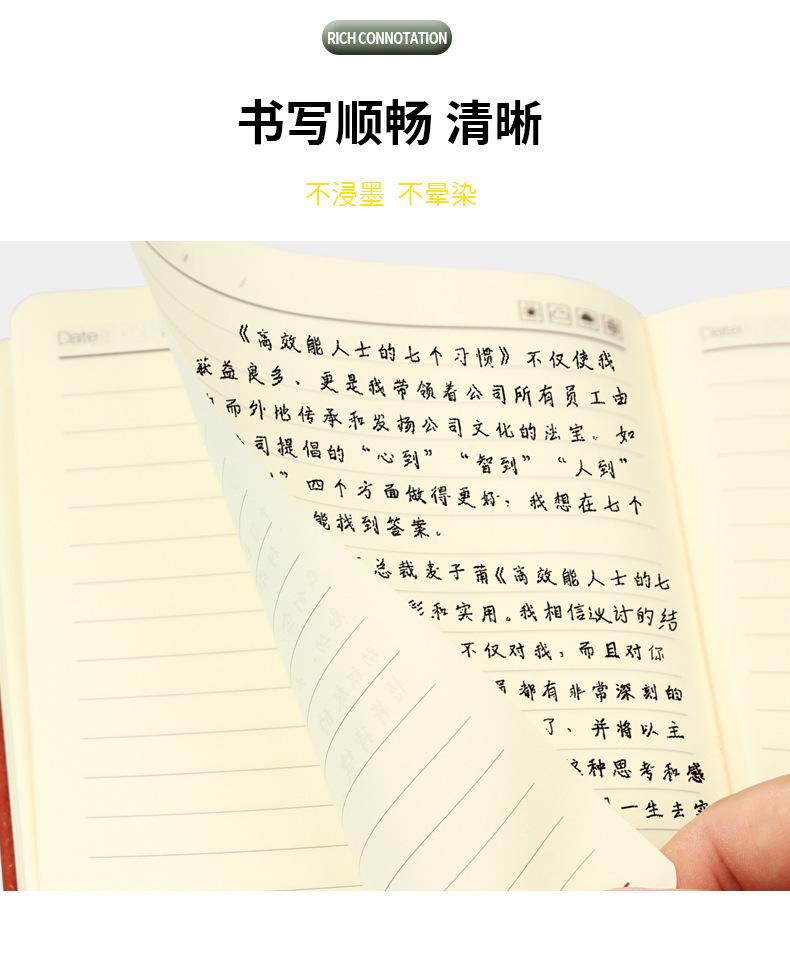 RICH CONNOTATION
书写顺畅 清晰
不浸墨 不晕染
Date
Date
《高效能人士的七个习惯》不仅使我
获益良多、更是我带领着公司所有员工由
而外地传承和发扬公司文化的法宝。如
司提倡的“心到”“智到”“人到”
”四个方面做得更好，我想在七个
能找到答案。
总裁麦子莆《高效能人士的七
彩和实用。我相信议讨的结
不仅对我，而且对你
员都有非常深刻的
了、并将以主
这种思考和感
一生去实